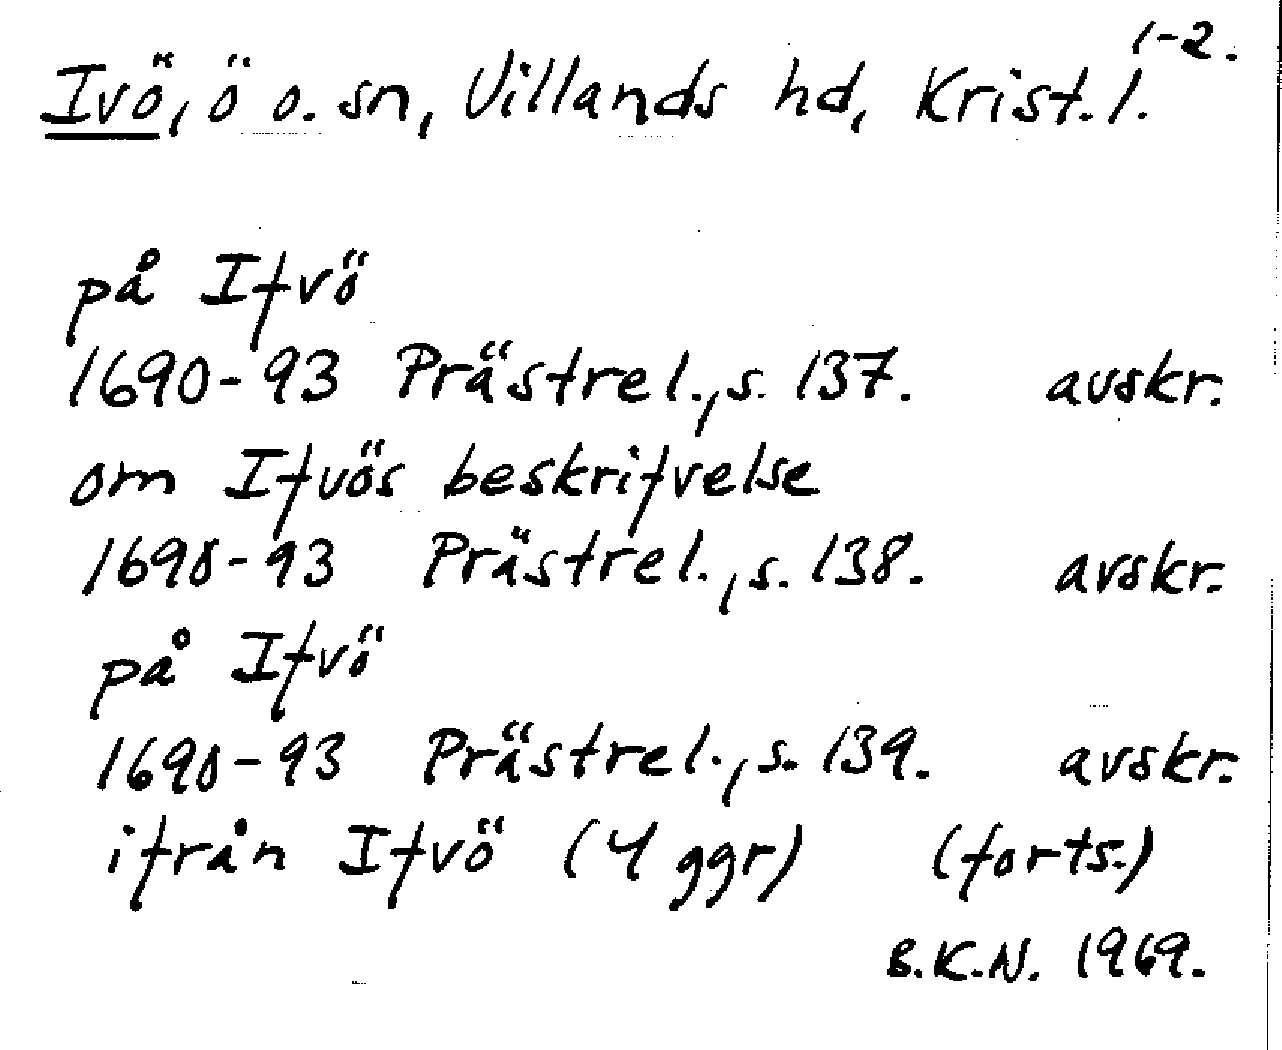 1-2.
Ivö, ö o. sn, Villands hd, Krist. l.
på Ifvö
1690-93 Prästrel., s. 137. avskr.
om Ifvös beskrifvelse
1690-93 Prästrel., s. 138. avskr.
på Ifvö
1690-93 Prästrel., s. 139. avskr.
ifrån Ifvö (4 ggr) (forts.)
B.K.N. 1969.